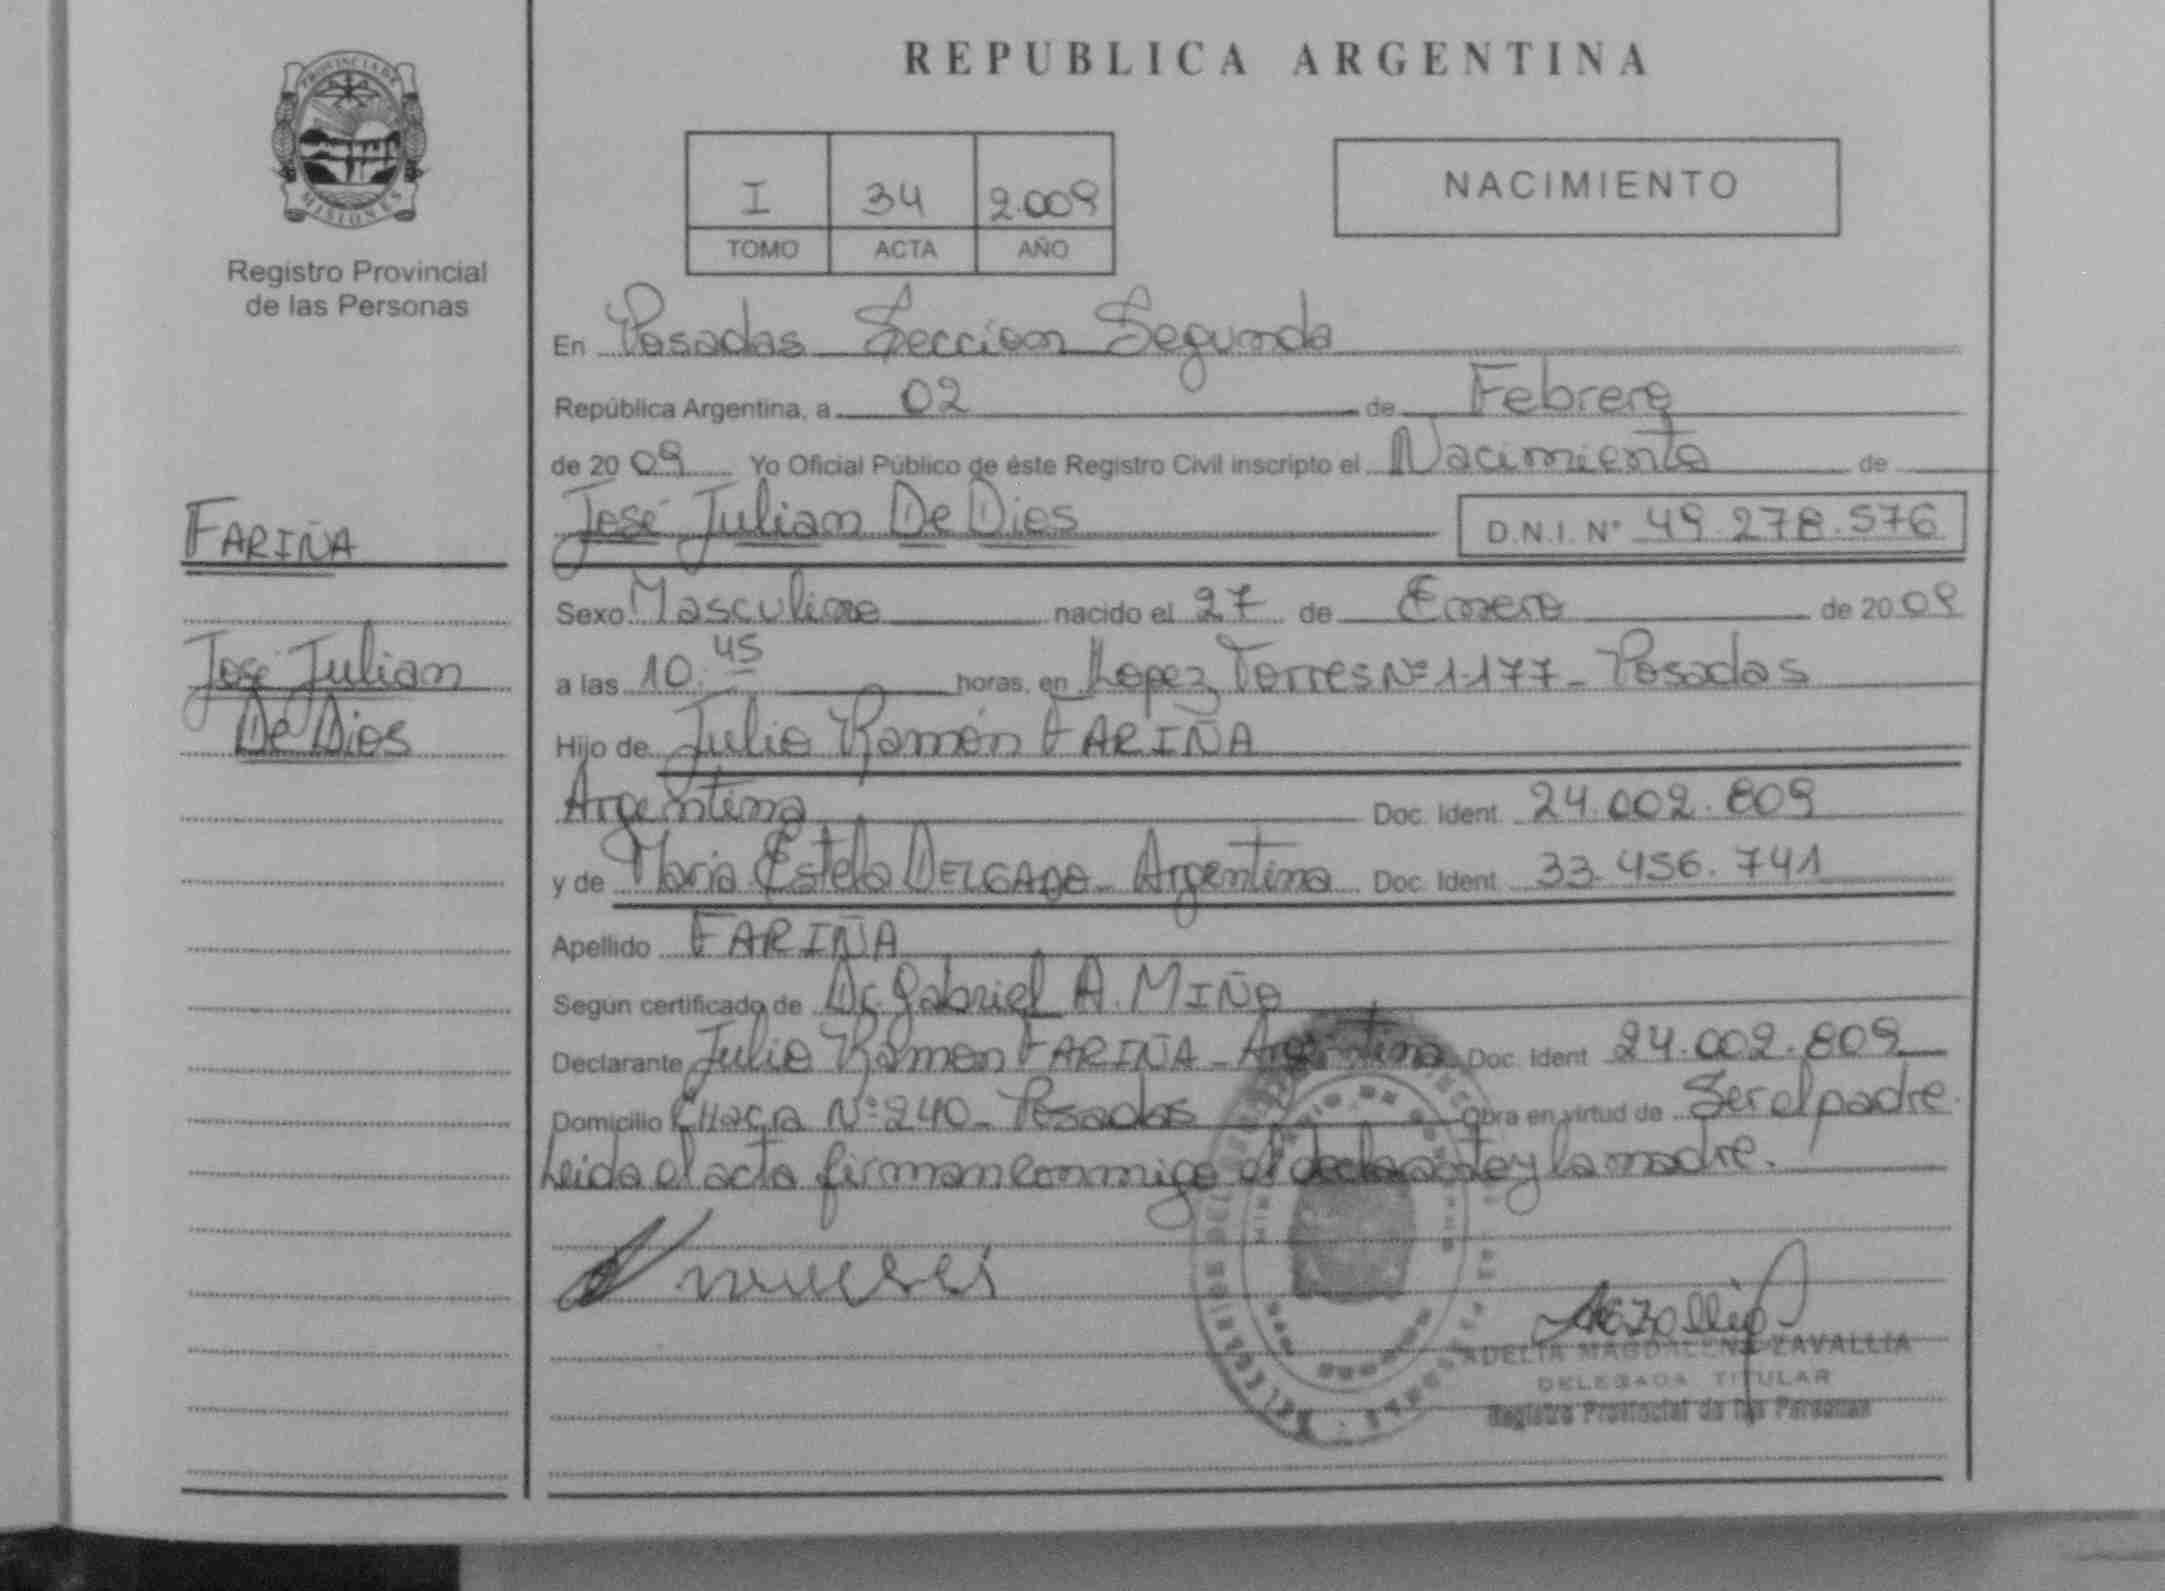 PROVINCIA DE
MISIONES
Registro Provincial
de las Personas
FARIÑA
José Julian
De Dios
REPUBLICA ARGENTINA
I 34 2.009
TOMO ACTA AÑO
NACIMIENTO
En Posadas Seccion Segunda
República Argentina, a 02 de Febrero
de 20 09 Yo Oficial Público de éste Registro Civil inscripto el Nacimiento de
José Julian De Dios D.N.I. Nº 49.278.576
Sexo Masculino nacido el 27 de Enero de 20 09
a las 10.45 horas, en Lopez Torres Nº 1.177 - Posadas
Hijo de Julio Ramón FARIÑA
Argentina Doc. Ident. 24.002.809
y de Maria Estela DELGADO - Argentina Doc. Ident. 33.456.741
Apellido FARIÑA
Según certificado de Dr. Gabriel A. MIÑO
Declarante Julio Ramón FARIÑA - Argentina Doc. Ident 24.002.809
Domicilio Chacra Nº 240 - Posadas Obra en virtud de Ser el padre.
Leida el acta firman conmigo el declarante y la madre.
ADELIA MAGDALENA ZAVALLIA
DELEGADA TITULAR
Registro Provincial de las Personas